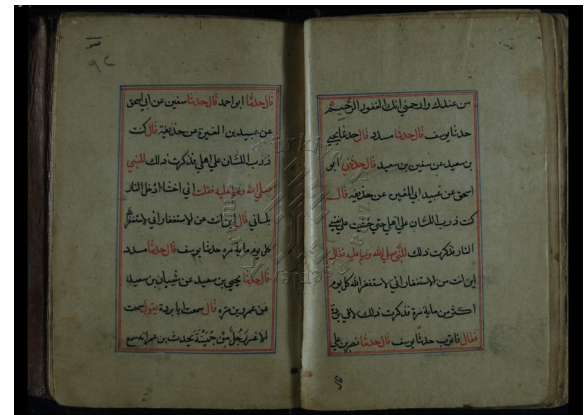 من عندك وارحمني انك انت الغفور الرحيم
حدثنا يوسف قال حدثنا مسدد قال حدثنا يحيى
بن سعيد عن سفين بن سعيد قال حدثني ابو
اسحق عن عبيد ابي المغيرة عن حذيفة قال
كنت ذرب اللسان على اهلي حتى خفت على نفسي
النار فذكرت ذلك للنبي صلى الله وسلم عليه فقال
اين انت من الاستغفار اني لاستغفر الله كل يوم
اكثر من ماية مرة فذكرت ذلك لابي بردة
فقال فاتوب حدثنا يوسف قال حدثنا نصر بن علي
قال حدثنا ابو احمد قال حدثنا سفين عن ابي اسحق
عن عبيد بن المغيرة عن حذيفة قال كنت
ذرب اللسان على اهلي فذكرت ذلك للنبي
صلى الله وسلم عليه فقلت اني اخشا ادخل النار
بلساني قال اين انت عن الاستغفار اني لاستغفر
كل يوم ماية مرة حدثنا يوسف قال حدثنا مسدد
قال حدثنا يحيى بن سعيد عن شيبان بن سعيد
عن عمرو بن مرة قال سمعت ابا بردة يقول سمعت
الاغر رجل من جهينة يحدث بن عمر انه سمع